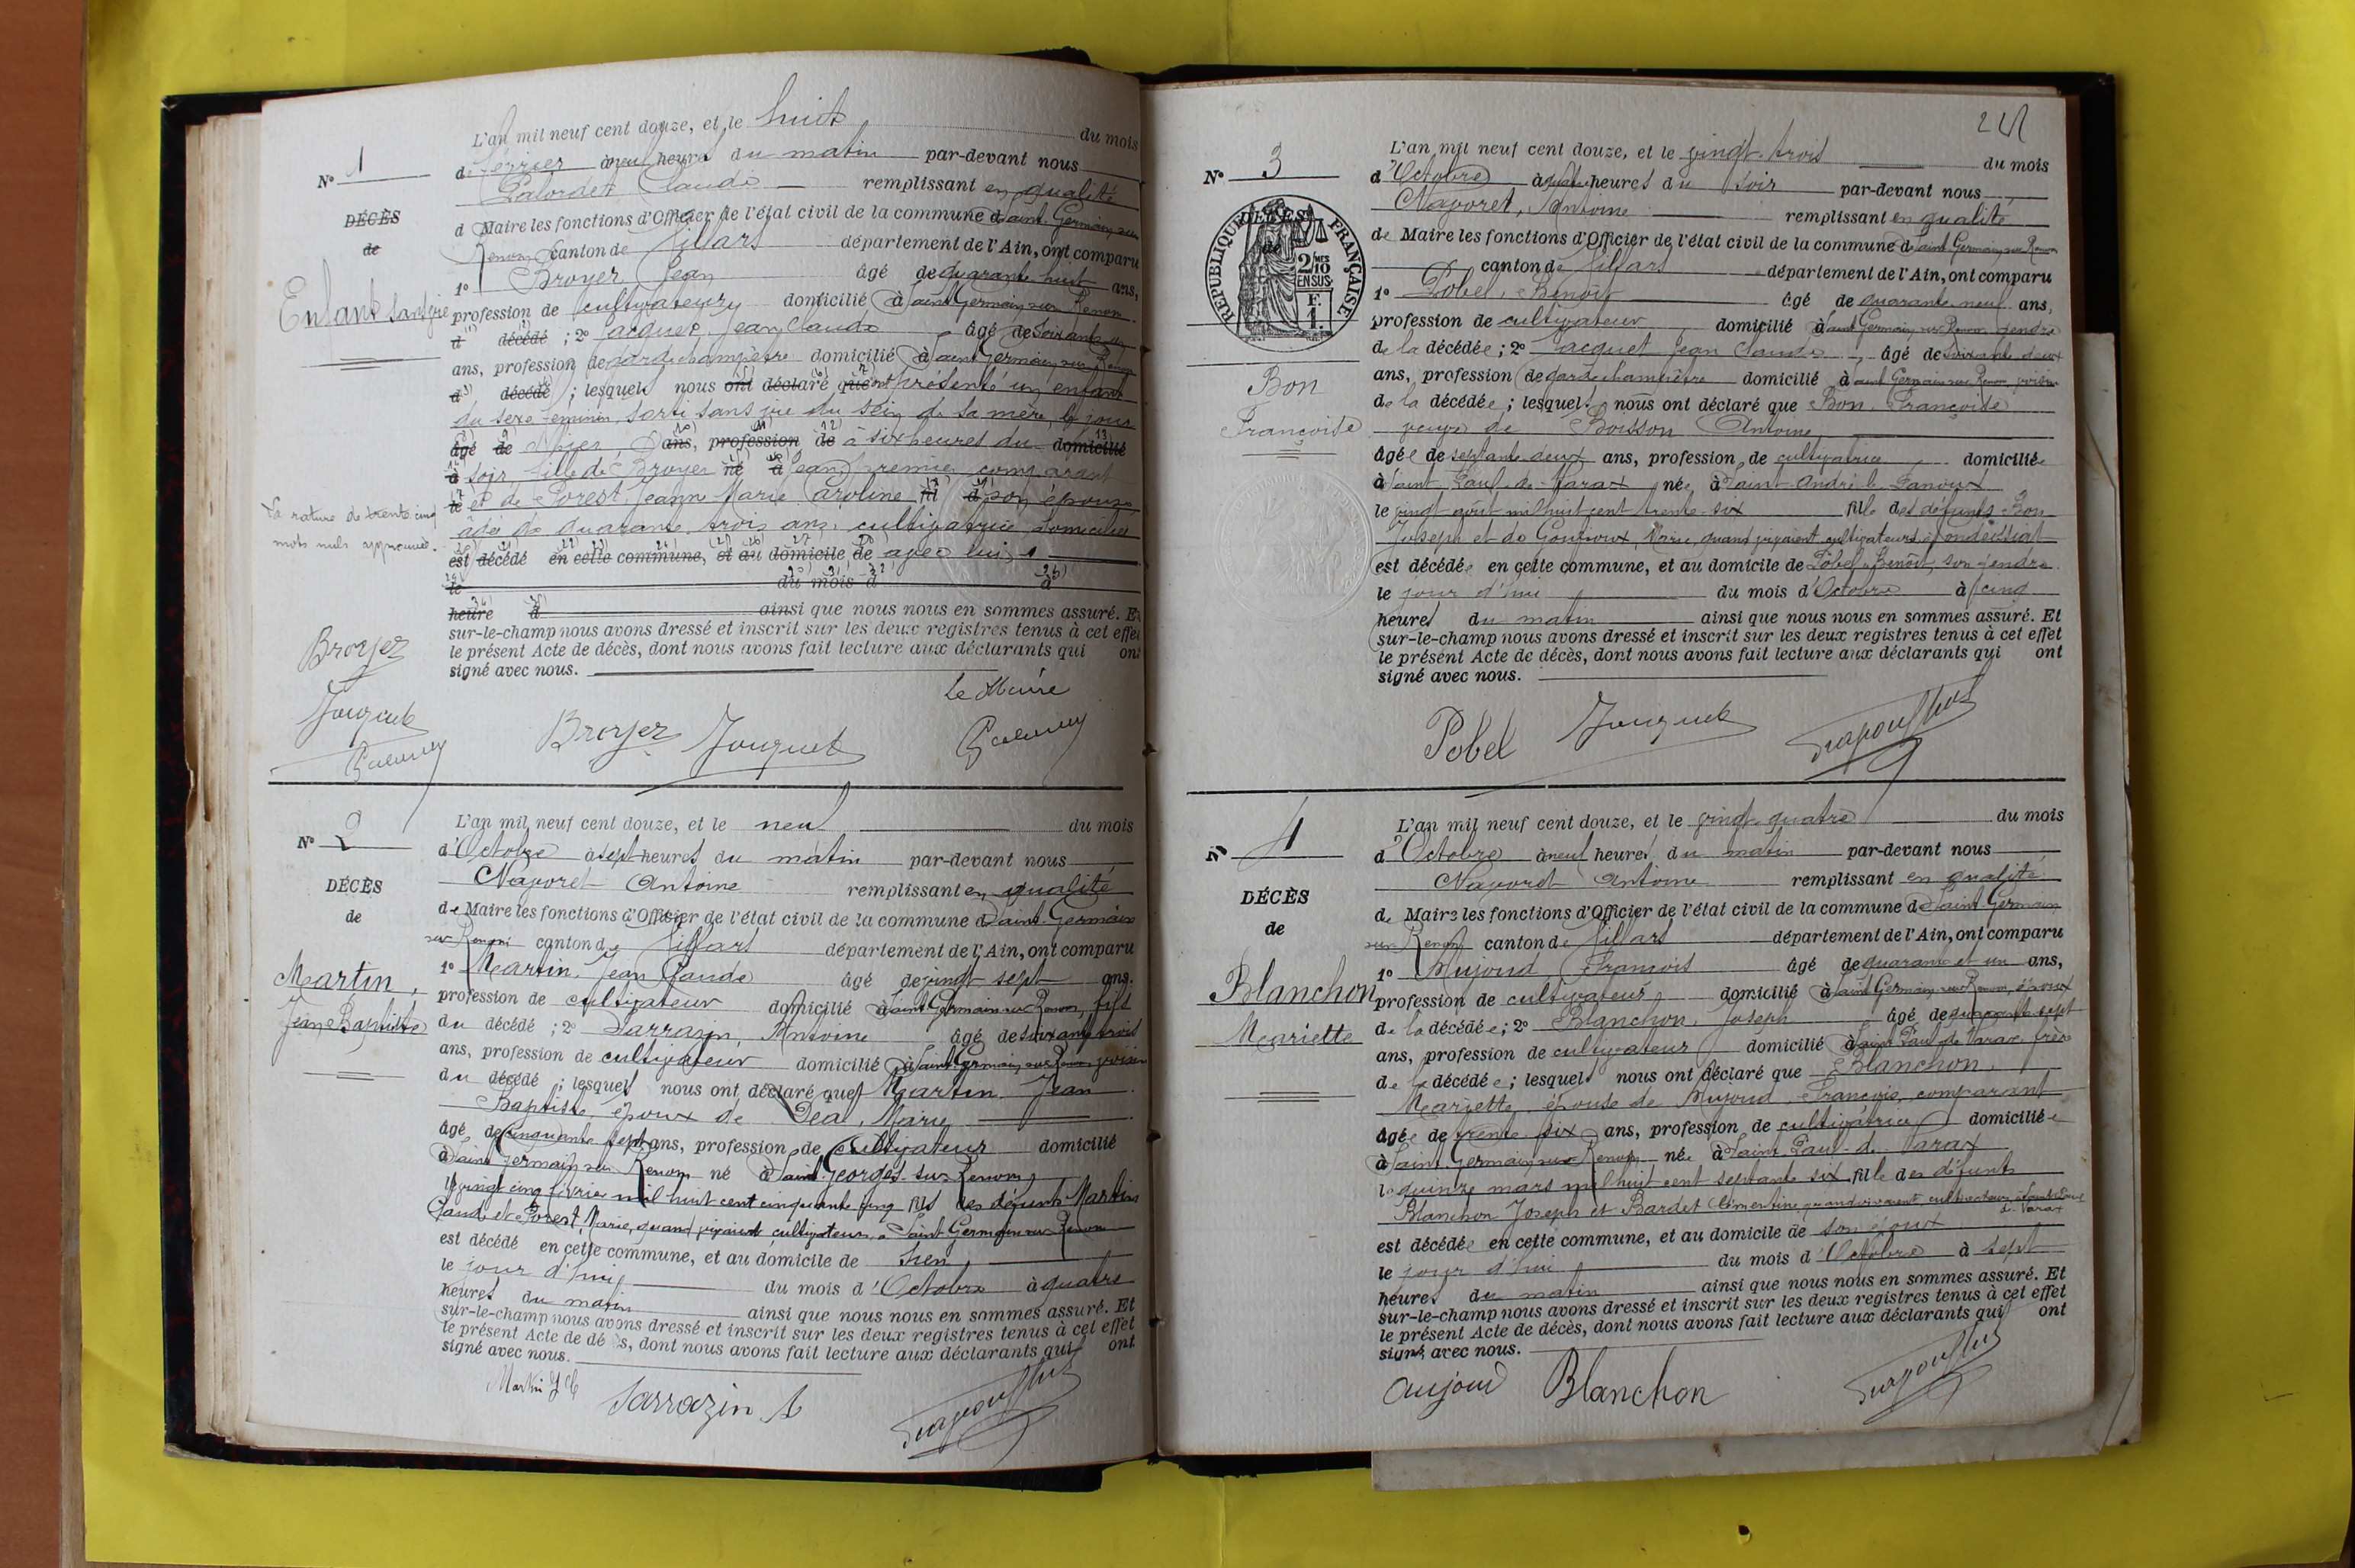 N° 1
DÉCÈS
de
Enfant sans vie
L'an mil neuf cent douze, et le huit du mois
de février à neuf heures du matin par-devant nous
Claude remplissant en qualité
de Maire les fonctions d'Officier de l'état civil de la commune de Saint-Germain-sur
Renom canton de Villars département de l'Ain, ont comparu
1° Broyer Jean âgé de quarante huit ans,
profession de cultivateur domicilié à Saint Germain sur Renom
d décédé ; 2° Jacquet Jean Claude âgé de soixante un
ans, profession de garde champêtre domicilié à Saint Germain sur Renom
d décédé ; lesquels nous ont déclaré que ont présenté un enfant
du sexe féminin, sorti sans vie du sein de sa mère, le jour
âgé de d'hier, ans, profession de à six heures du domicilié
à soir, fille de Broyer né à Jean premier comparant
le et de Forest Jeanne Marie Caroline fil d son épouse
âgée de quarante trois ans, cultivatrice, domiciliée
est décédé en cette commune, et au domicile de avec lui
le du mois d à
heure d ainsi que nous nous en sommes assuré. Et
sur-le-champ nous avons dressé et inscrit sur les deux registres tenus à cet effet
le présent Acte de décès, dont nous avons fait lecture aux déclarants qui ont
signé avec nous.
La rature de trente cinq
mots nuls approuvée.
Broyer
Jacquet
Le Maire
Broyer Jacquet
N° 2
DÉCÈS
de
Martin,
Jean Baptiste
L'an mil neuf cent douze, et le neuf du mois
d'Octobre à sept heures du matin par-devant nous
Nayoret Antoine remplissant en qualité
de Maire les fonctions d'Officier de l'état civil de la commune de Saint-Germain
sur Renom canton de Villars département de l'Ain, ont comparu
1° Martin, Jean Claude âgé de vingt sept ans,
profession de cultivateur domicilié à Saint Germain sur Renom, fils
du décédé ; 2° Sarrazin, Antoine âgé de soixante trois
ans, profession de cultivateur domicilié à Saint Germain sur Renom voisin
du décédé ; lesquels nous ont déclaré que Martin Jean
Baptiste, époux de Dea, Marie
âgé de cinquante sept ans, profession de cultivateur domicilié
à Saint Germain sur Renom né à Saint Georges-sur-Renom
le vingt cinq février mil huit cent cinquante cinq fils des défunts Martin
Claude et Forest, Marie, quand vivaient cultivateurs à Saint Germain sur Renom
est décédé en cette commune, et au domicile de sien
le jour d'hui du mois d'Octobre à quatre
heures du matin ainsi que nous nous en sommes assuré. Et
sur-le-champ nous avons dressé et inscrit sur les deux registres tenus à cet effet
le présent Acte de décès, dont nous avons fait lecture aux déclarants qui ont
signé avec nous.
Martin J C
Sarrazin A
N° 3
DÉCÈS
de
RÉPUBLIQUE FRANÇAISE
2/10 MES
EN SUS.
F.
1.
Bon
Françoise
L'an mil neuf cent douze, et le vingt-trois du mois
d'Octobre à quatre heures du soir par-devant nous
Nayoret, Antoine remplissant en qualité
de Maire les fonctions d'Officier de l'état civil de la commune de Saint-Germain sur Renom
canton de Villars département de l'Ain, ont comparu
1° Pobel, Benoît âgé de quarante neuf ans,
profession de cultivateur domicilié à Saint Germain sur Renom, gendre
de la décédée ; 2° Jacquet Jean Claude âgé de soixante deux
ans, profession de garde champêtre domicilié à Saint Germain sur Renom, voisin
de la décédée ; lesquels nous ont déclaré que Bon, Françoise
veuve de Boisson Antoine
âgée de septante deux ans, profession de cultivatrice domiciliée
à Saint Paul-de-Varax née à Saint-André-le-Panoux
le vingt août mil huit cent trente-six fille des défunts Bon
Joseph et de Marie, quand vivaient cultivateurs à Condeissiat
est décédée en cette commune, et au domicile de Pobel Benoît, son gendre
le jour d'hui du mois d'Octobre à cinq
heures du matin ainsi que nous nous en sommes assuré. Et
sur-le-champ nous avons dressé et inscrit sur les deux registres tenus à cet effet
le présent Acte de décès, dont nous avons fait lecture aux déclarants qui ont
signé avec nous.
Pobel Jacquet
N° 4
DÉCÈS
de
Blanchon
Mariette
L'an mil neuf cent douze, et le vingt-quatre du mois
d'Octobre à neuf heures du matin par-devant nous
Nayoret Antoine remplissant en qualité
de Maire les fonctions d'Officier de l'état civil de la commune de Saint Germain
sur Renom canton de Villars département de l'Ain, ont comparu
1° Aujoud, François âgé de quarante et un ans,
profession de cultivateur domicilié à Saint Germain sur Renom, époux
de la décédée ; 2° Blanchon, Joseph âgé de sept
ans, profession de cultivateur domicilié à Saint Paul de Varax frère
de la décédée ; lesquels nous ont déclaré que Blanchon,
Mariette, épouse de Aujoud, François, comparant
âgée de trente six ans, profession de cultivatrice domiciliée
à Saint Germain sur Renom née à Saint Paul-de Varax
le quinze mars mil huit cent septante six fille des défunts
Blanchon Joseph et Bardet Clémentine, quand vivaient cultivateurs à Saint Paul
de Varax
est décédée en cette commune, et au domicile de son époux
le jour d'hui du mois d'Octobre à sept
heures du matin ainsi que nous nous en sommes assuré. Et
sur-le-champ nous avons dressé et inscrit sur les deux registres tenus à cet effet
le présent Acte de décès, dont nous avons fait lecture aux déclarants qui ont
signé avec nous.
Aujoud Blanchon